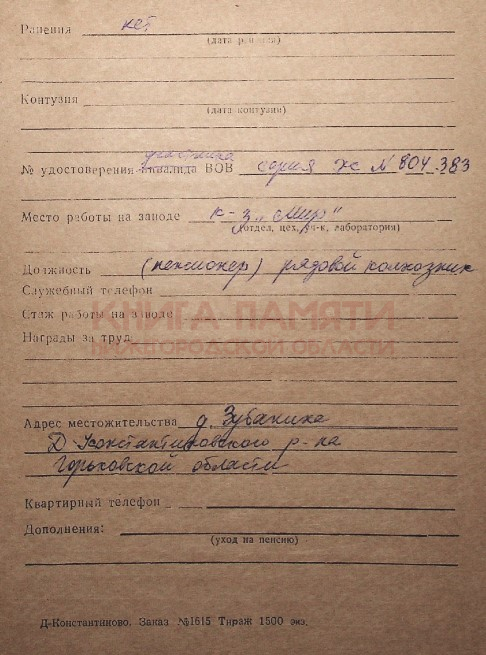 Ранения нет
(дата ранения)
Контузия
(дата контузии)
участника
№ удостоверения инвалида ВОВ серия ХС № 804.383
Место работы на заводе к-з „Мир"
(отдел, цех, уч-к, лаборатория)
Должность (пенсионер) рядовой колхозник
Служебный телефон
Стаж работы на заводе
КНИГА ПАМЯТИ
Награды за труд
НИЖЕГОРОДСКОЙ ОБЛАСТИ
Адрес местожительства д. Зубаниха
Д-Константиновского р-на
Горьковской области
Квартирный телефон
Дополнения:
(уход на пенсию)
Д-Константиново. Заказ №1615 Тираж 1500 экз.